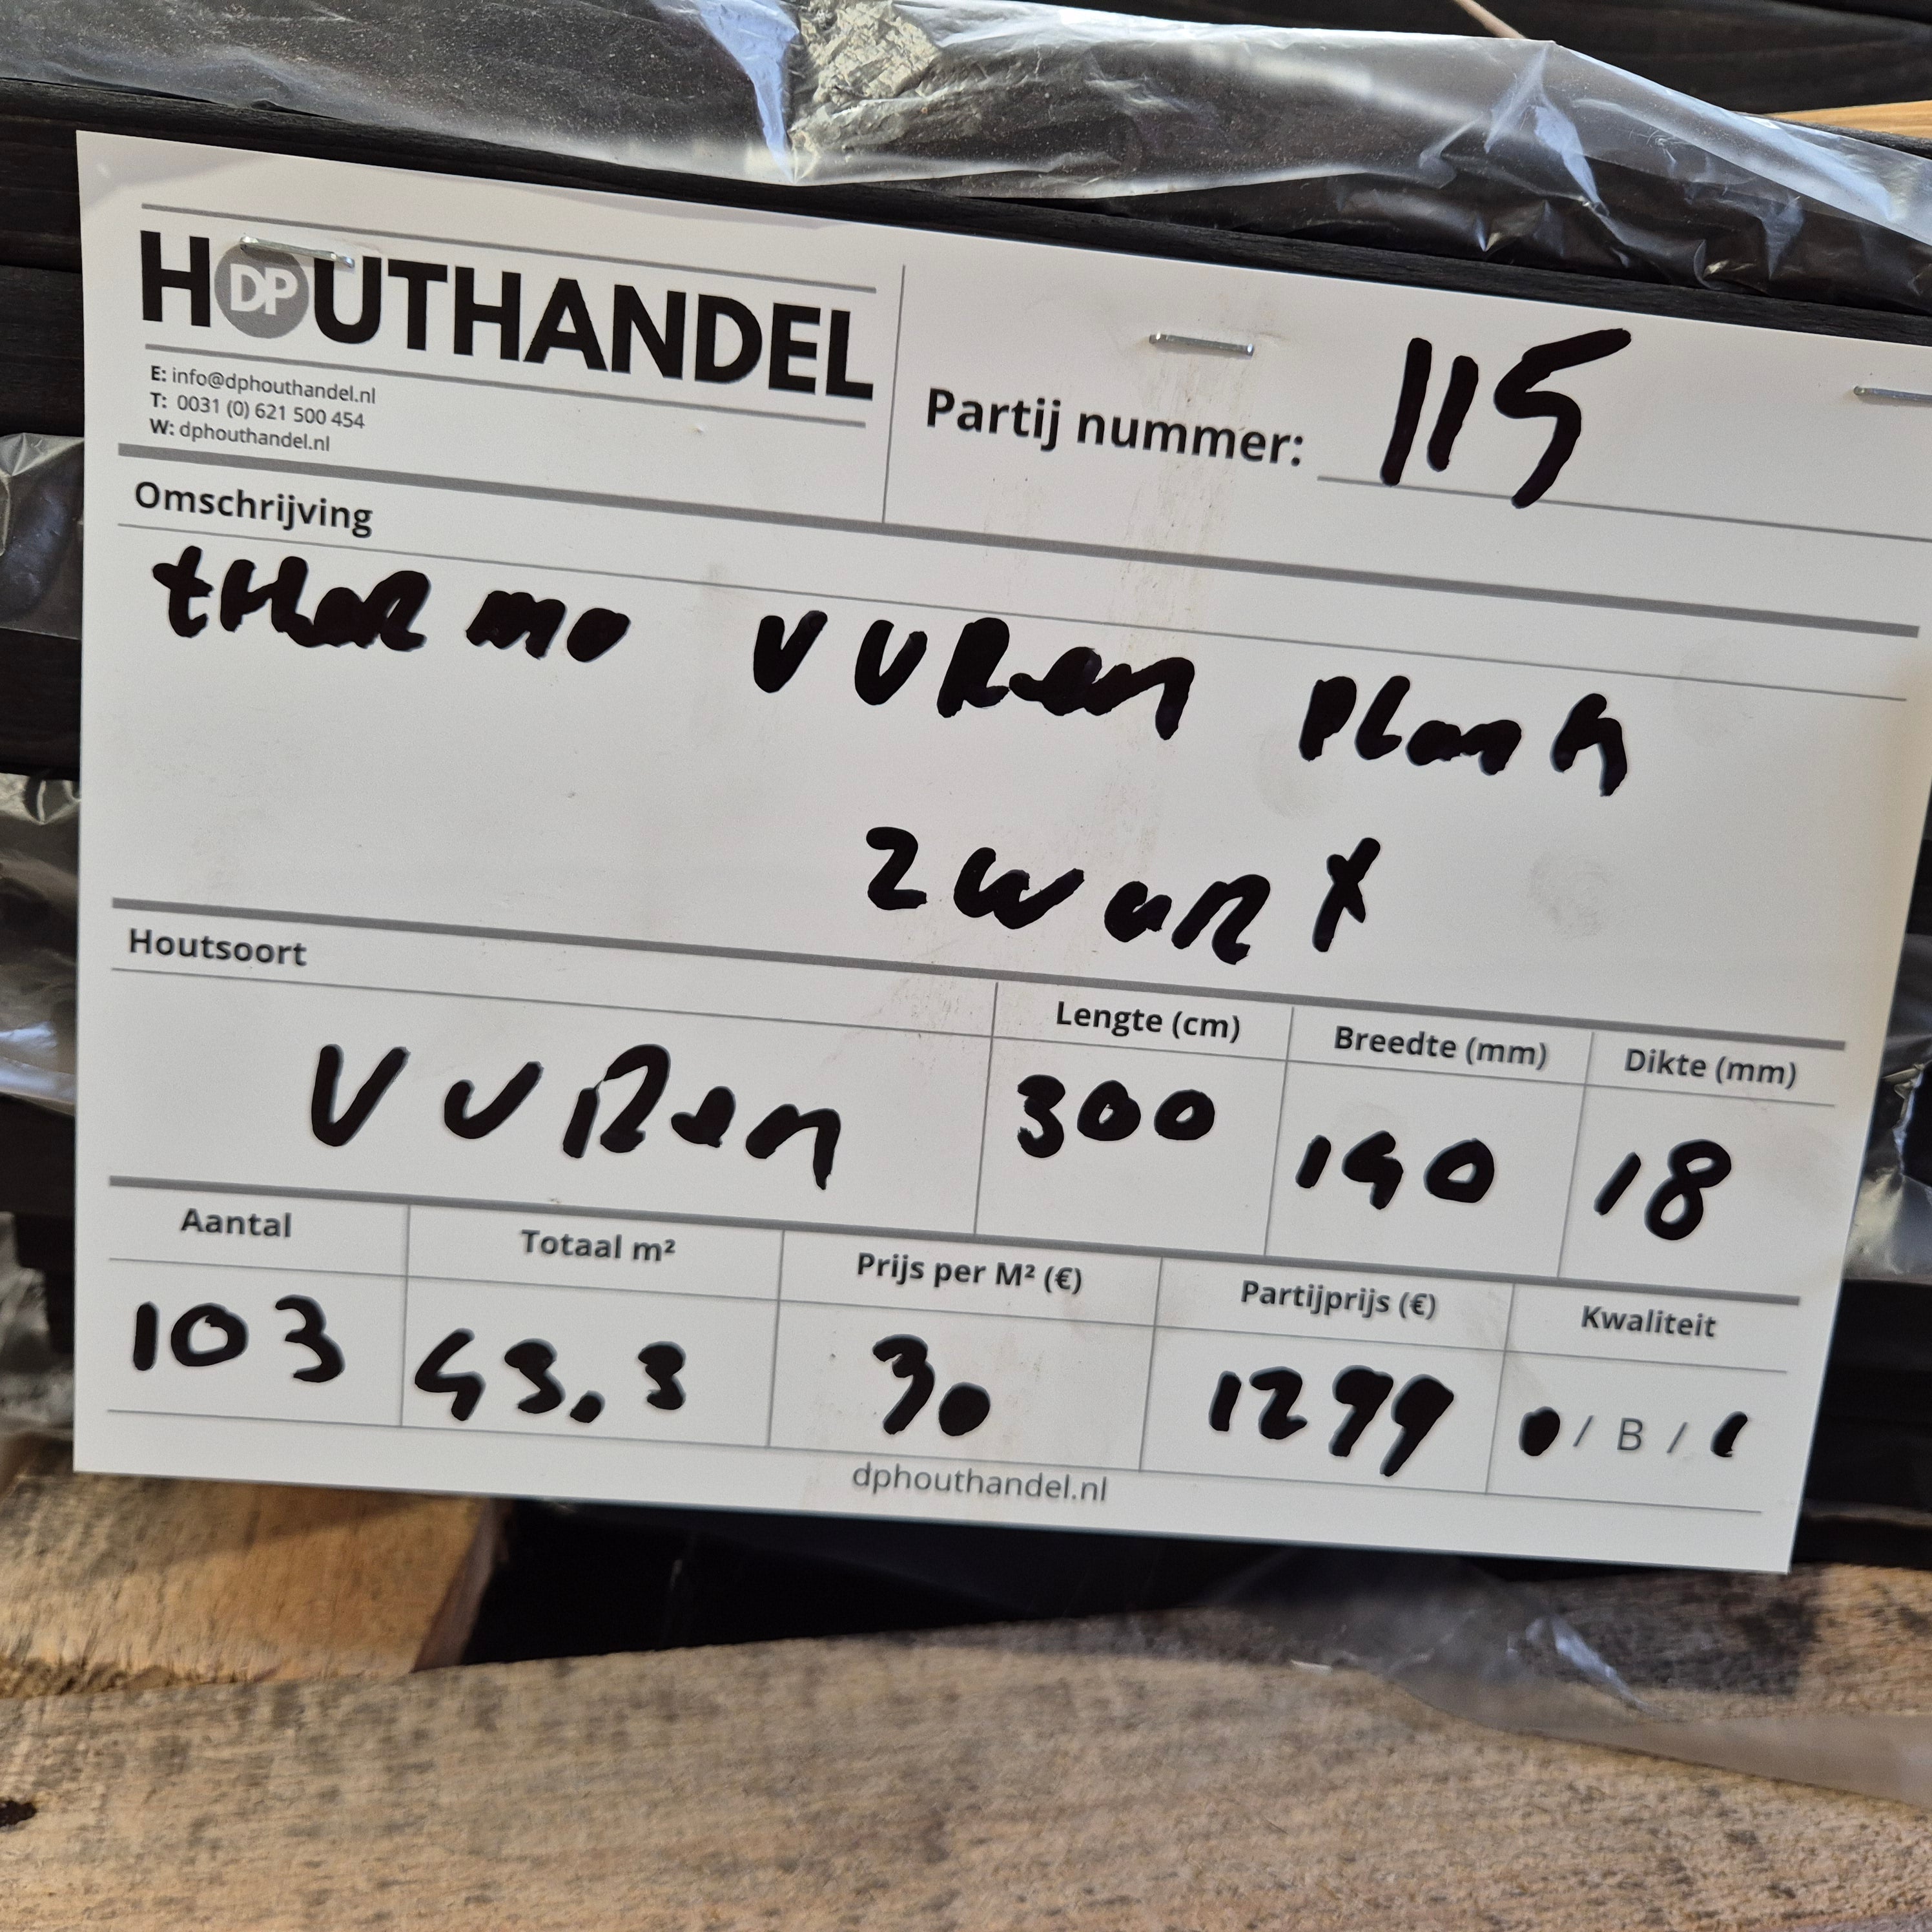 HOUTHANDEL
DP
E: info@dphouthandel.nl
T: 0031 (0) 621 500 454
W: dphouthandel.nl
Partij nummer: 115
Omschrijving
tHeRmo VURen PLank
ZwaRt
Houtsoort
VURen
Lengte (cm)
300
Breedte (mm)
140
Dikte (mm)
18
Aantal
103
Totaal m²
43,3
Prijs per M² (€)
30
Partijprijs (€)
1299
Kwaliteit
/ B /
dphouthandel.nl